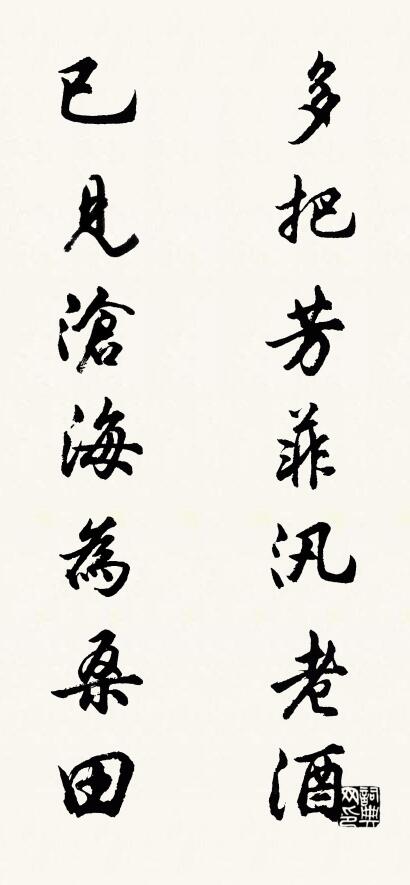 多把芳菲汎春酒
已見滄海為桑田
詞典
网印